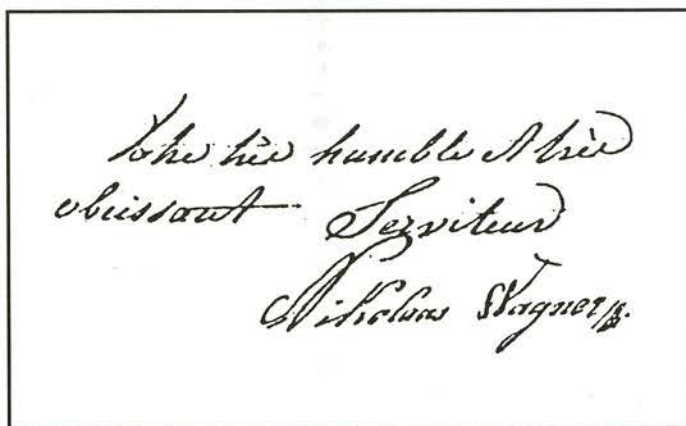 Votre très humble & très
obeissant Serviteur
Nikolaus Wagner